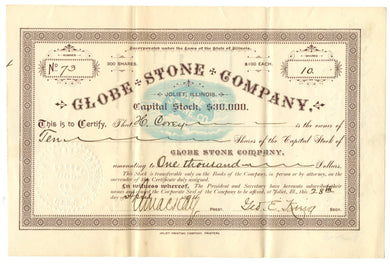 Incorporated under the Laws of the State of Illinois.
NUMBER
SHARES
No 73
300 SHARES.
$100 EACH.
10.
GLOBE STONE COMPANY,
JOLIET, ILLINOIS.
Capital Stock, $30,000.
This is to Certify, That H. is the owner of
Ten Shares of the Capital Stock of
GLOBE STONE COMPANY,
amounting to One thousand Dollars.
This Stock is transferable only on the Books of the Company, in person or by attorney, on the
surrender of the Certificate duly assigned.
In witness whereof, The President and Secretary have hereunto subscribed their
names and caused the Corporate Seal of the Company to be affixed, at Joliet, Ill., this 28th
day of
PREST. Geo. E. King SECY.
JOLIET PRINTING COMPANY, PRINTERS.